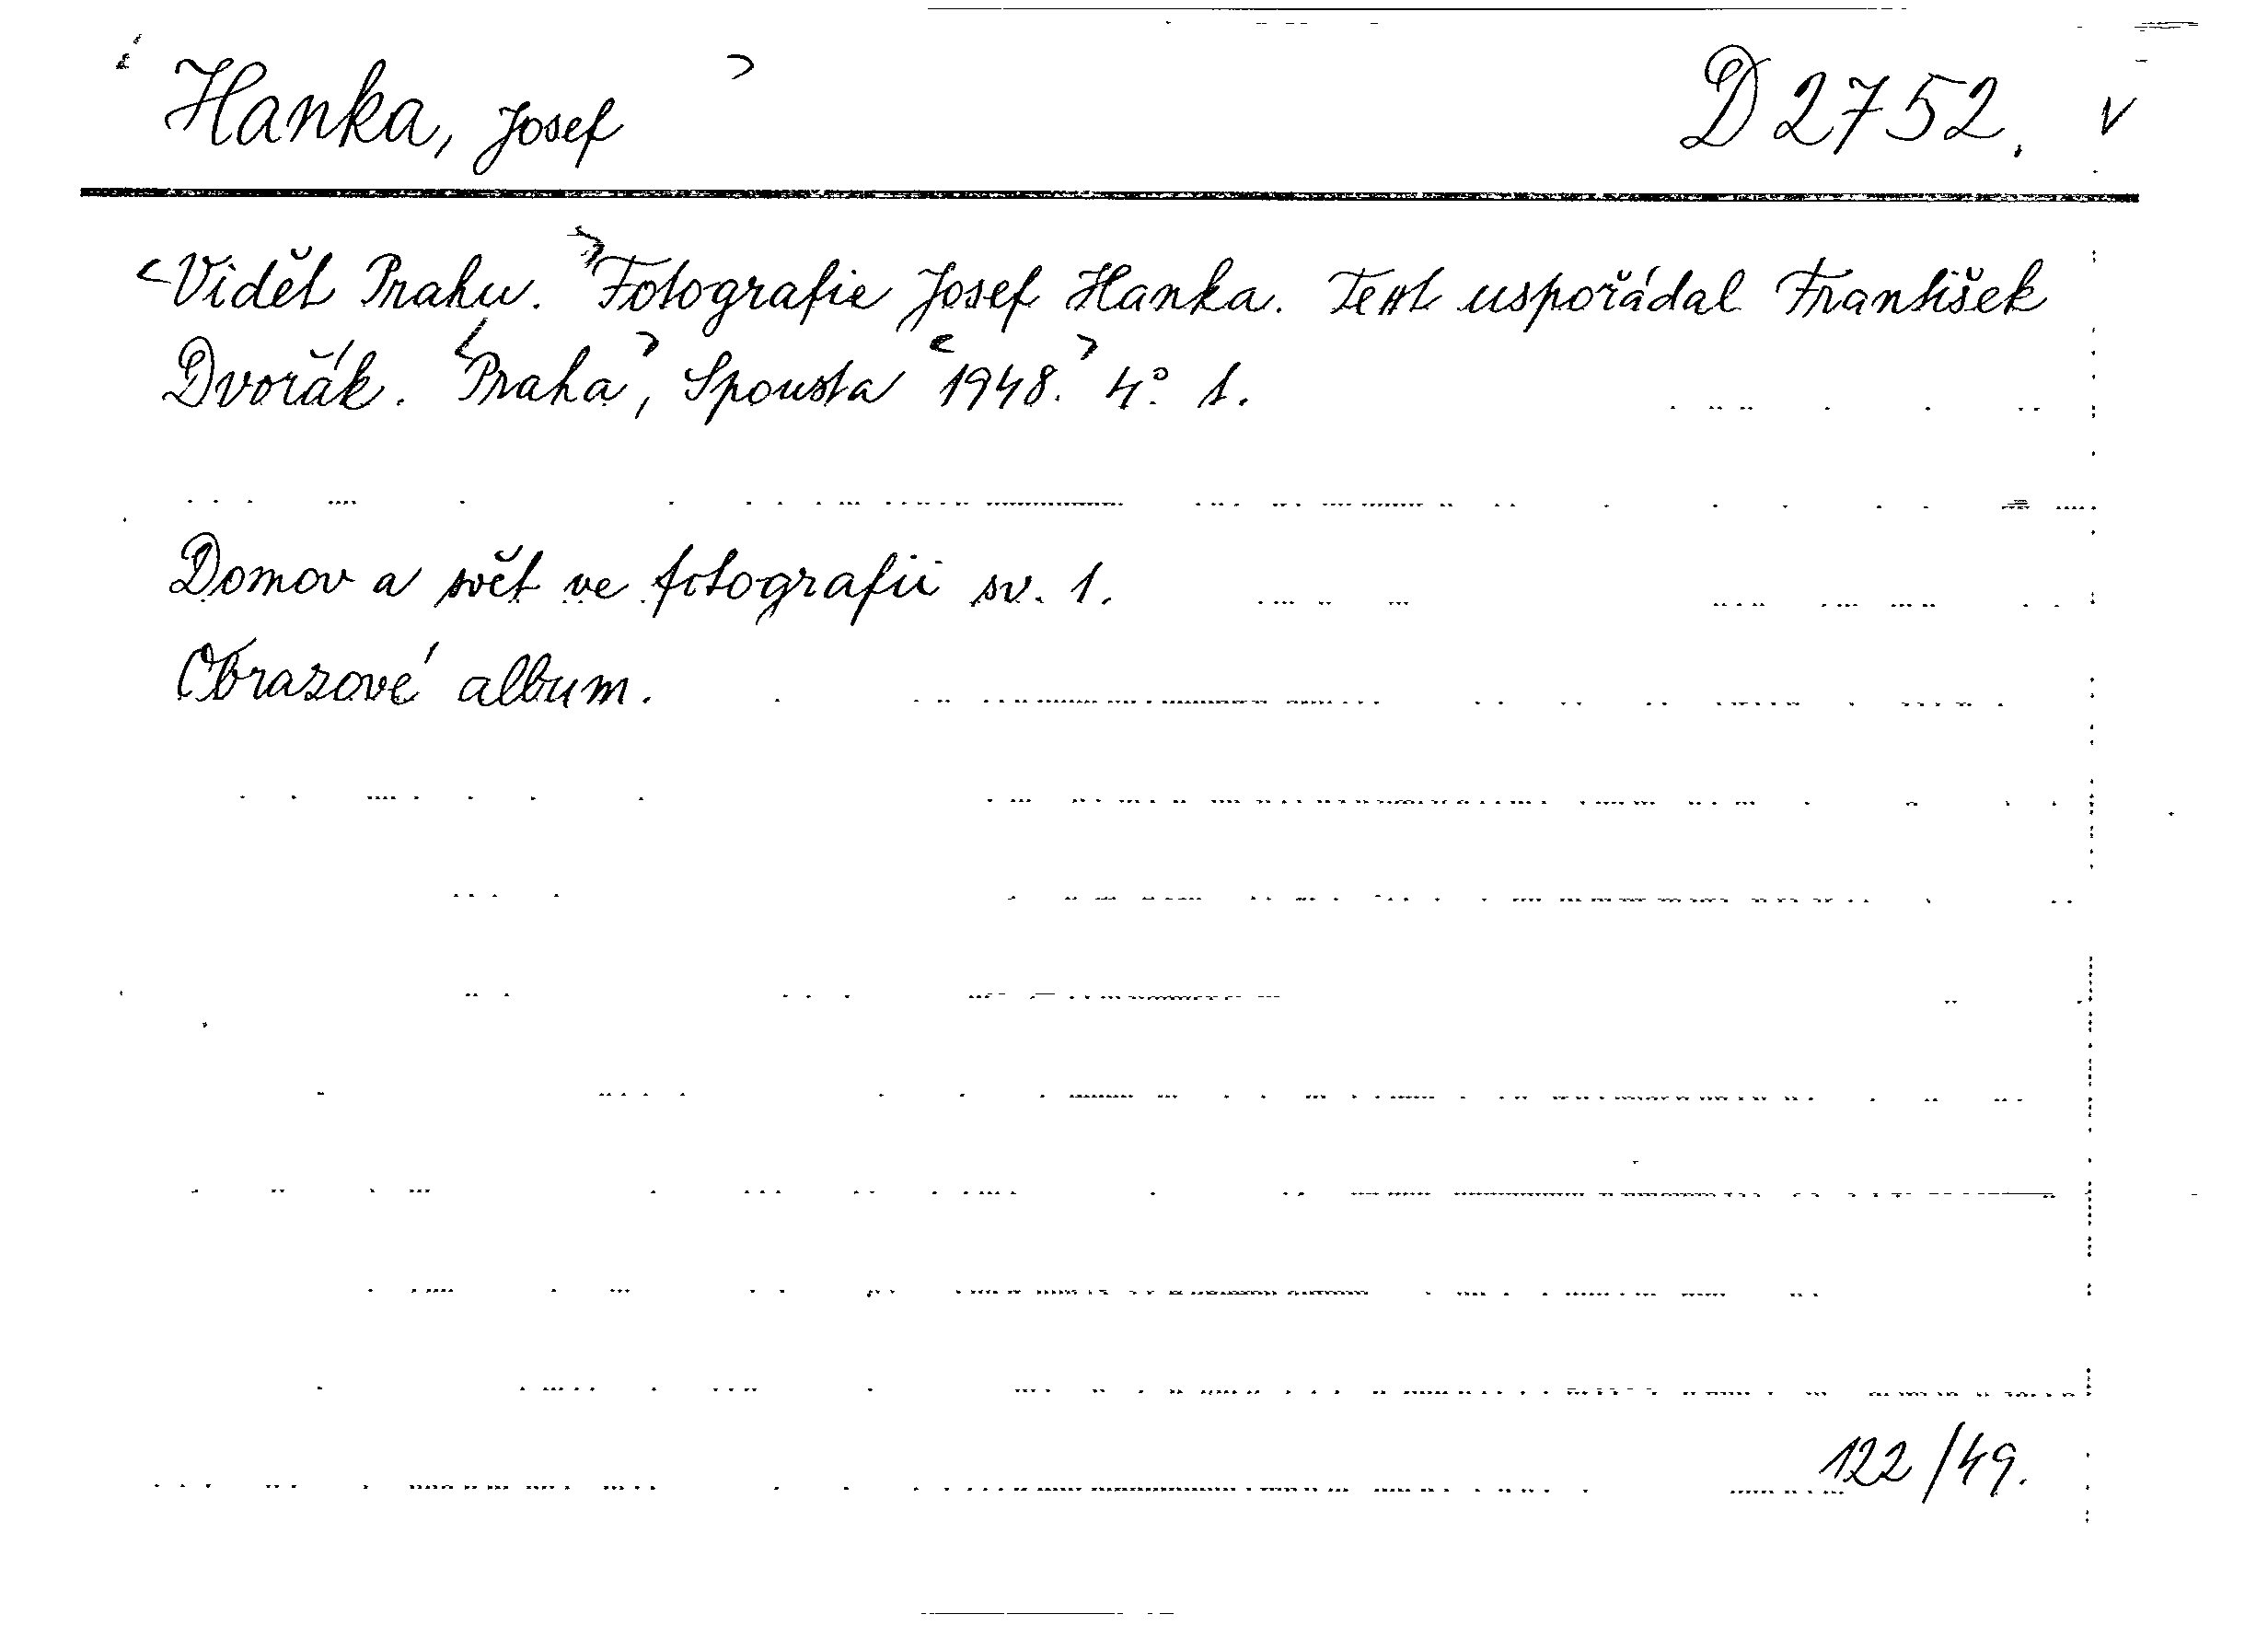 Hanka, Josef D 2752. v
Vidět Prahu. Fotografie Josef Hanka. Text uspořádal František
Dvořák. Praha, Spousta 1948. 4° 1.
Domov a svět ve fotografii sv. 1.
Obrazové album.
122/49.